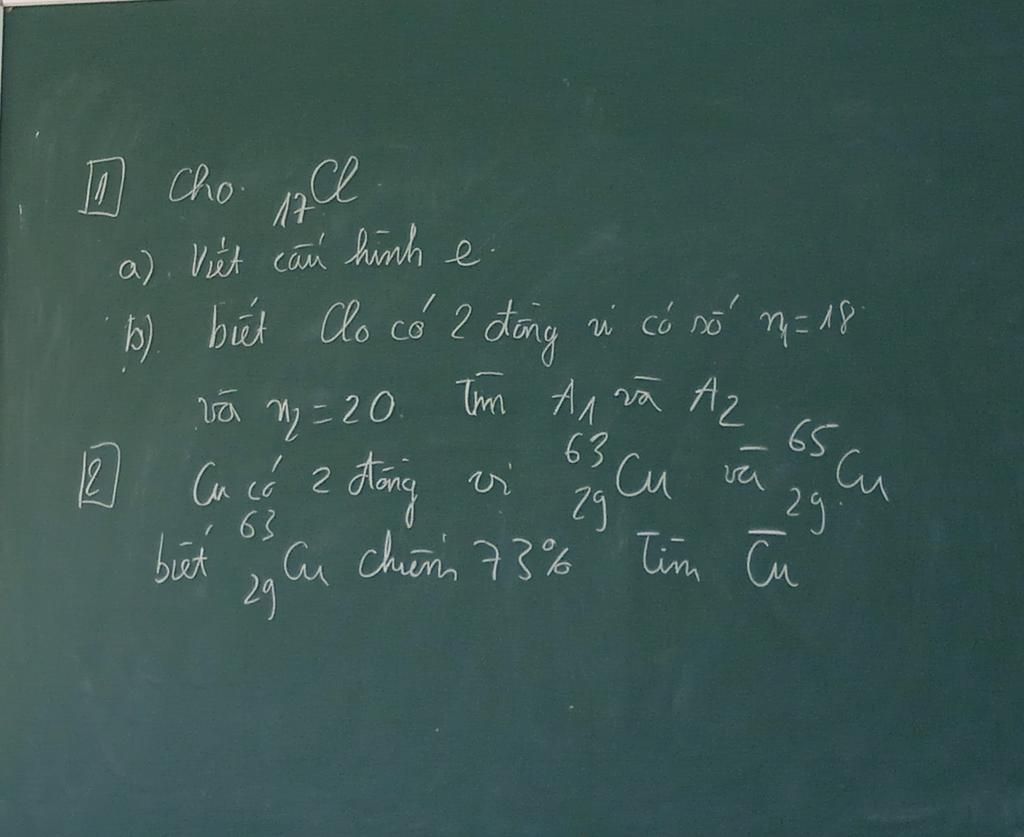 1 Cho ₁₇Cl
a) Viết cấu hình e.
b) biết Clo có 2 đồng vị có số n₁ = 18
và n₂ = 20. Tìm A₁ và A₂
2 Cu có 2 đồng vị ⁶³₂₉Cu và ⁶⁵₂₉Cu
biết ⁶³₂₉Cu chiếm 73% Tìm C̅u̅